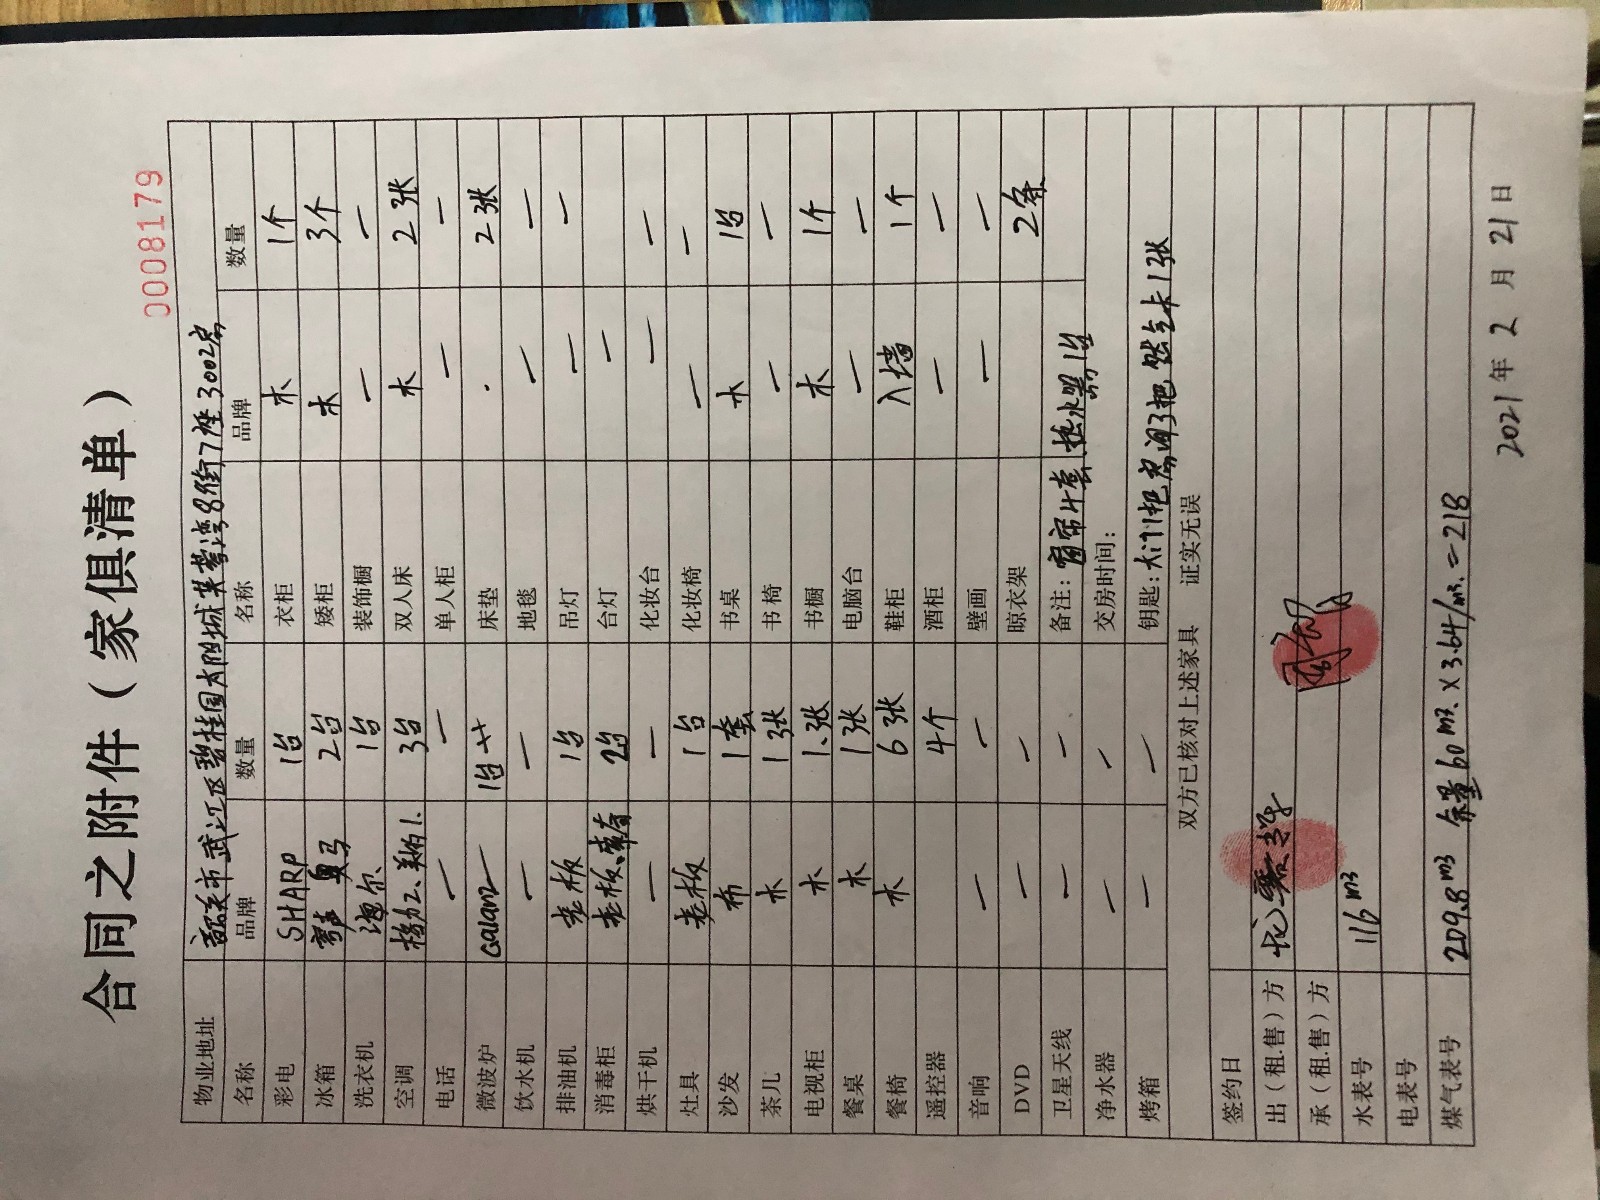 合同之附件（家俱清单）
0008179
物业地址 韶关市武江区碧桂园太阳城芙蓉湾8街7座3002房
名称 品牌 数量 名称 品牌 数量
彩电 SHARP 1台 衣柜 木 1个
冰箱 2台 矮柜 木 3个
洗衣机 海尔 1台 装饰橱 — —
空调 3台 双人床 木 2张
电话 — — 单人柜 — —
微波炉 Galanz 1台 床垫 · 2张
饮水机 — — 地毯 — —
排油机 老板 1台 吊灯 — —
消毒柜 老板、 2台 台灯 —
烘干机 — — 化妆台 — —
灶具 老板 1台 化妆椅 — —
沙发 布 1套 书桌 木 1台
茶儿 木 1张 书椅 — —
电视柜 木 1张 书橱 木 1个
餐桌 木 1张 电脑台 — —
餐椅 木 6张 鞋柜 入墙 1个
遥控器 4个 酒柜 — —
音响 — — 壁画 — —
DVD — — 晾衣架 2条
卫星天线 — — 备注：窗帘4套 热水器1台
净水器 — — 交房时间：
烤箱 — — 钥匙：大门1把 房间3把 燃气卡1张
双方已核对上述家具 证实无误
签约日
出（租.售）方
承（租.售）方
水表号 116 m³
电表号
煤气表号 209.8m³ 余量60m³×3.64/m³.=218
2021年2月21日